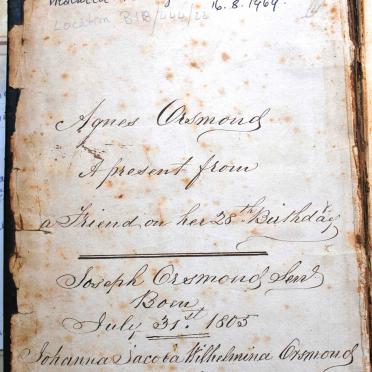 16.8.1969.
Location B1B/444/22
Agnes Orsmond
A present from
a Friend on her 28th Birthday
Joseph Orsmond Senr
Born
July 31st 1805
Johanna Jacoba Wilhelmina Orsmond